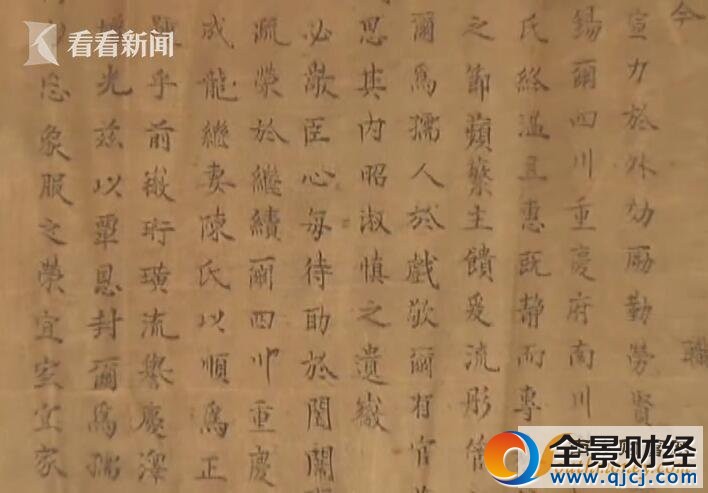 看看新闻
今
職
宣力於外劬勵勤勞賢
錫爾四川重慶府南川
氏終溫且惠既静而專
之節蘋蘩主饋爰流彤管
爾爲孺人於戲敬爾有官
思其内昭淑慎之遺徽
必敬臣心每待助於閨闈
疏榮於繼續爾四川重慶
成龍繼妻陳氏以順爲正
乎前徽珩璜流譽慶澤
光兹以覃恩封爾爲孺
象服之榮宜室宜家
全景财经
www.qjcj.com